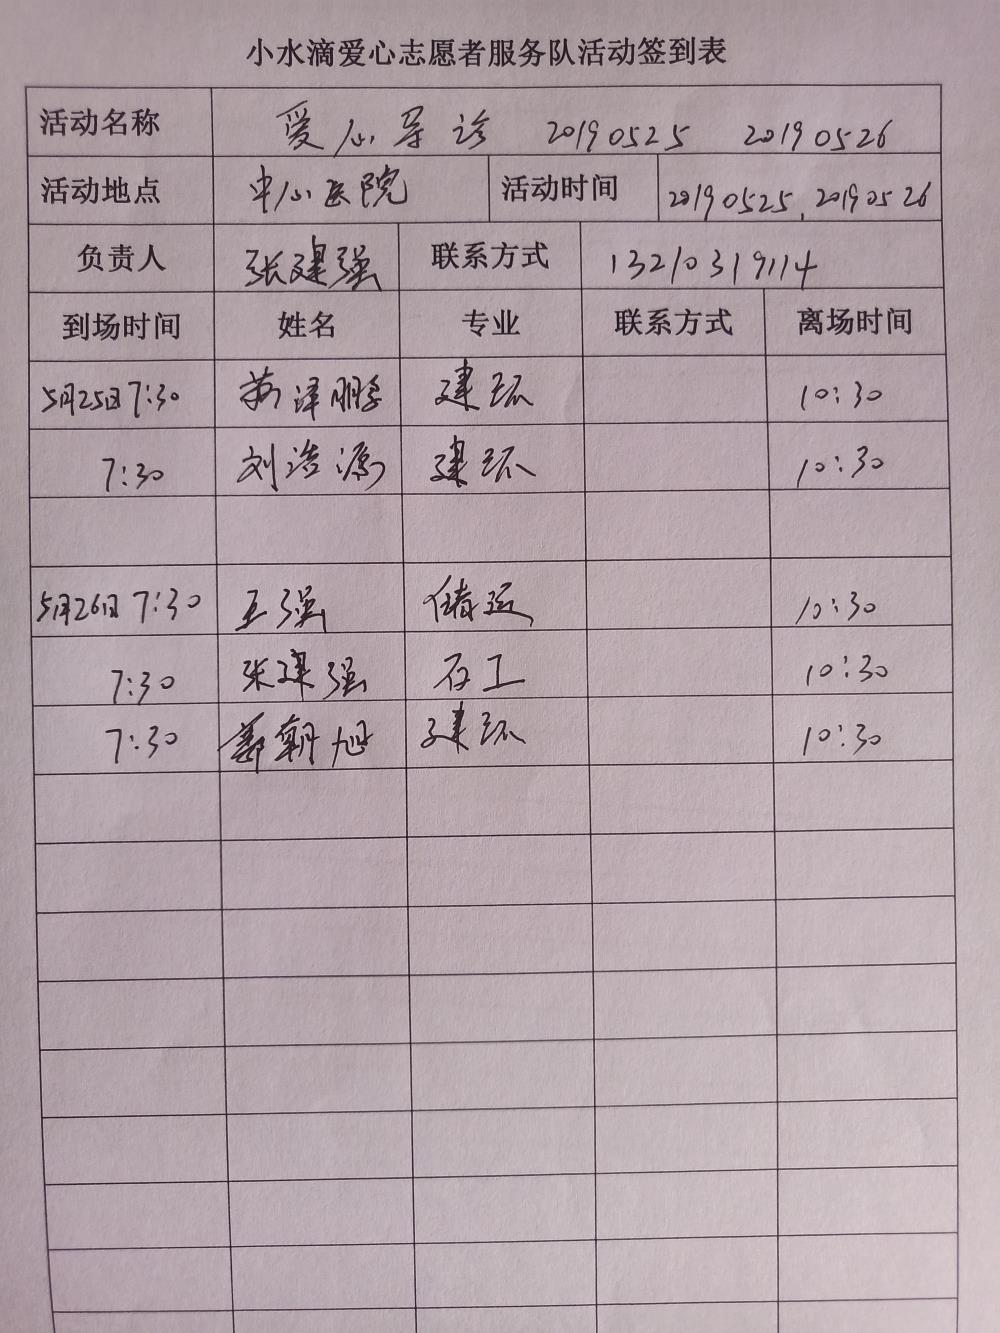 小水滴爱心志愿者服务队活动签到表
活动名称 爱心导诊 20190525 20190526
活动地点 中心医院 活动时间 20190525、20190526
负责人 张建强 联系方式 13210319114
到场时间 姓名 专业 联系方式 离场时间
5月25日 7:30 泽鹏 建环 10:30
7:30 刘浩源 建环 10:30
5月26日 7:30 王强 储运 10:30
7:30 张建强 石工 10:30
7:30 郭朝旭 建环 10:30